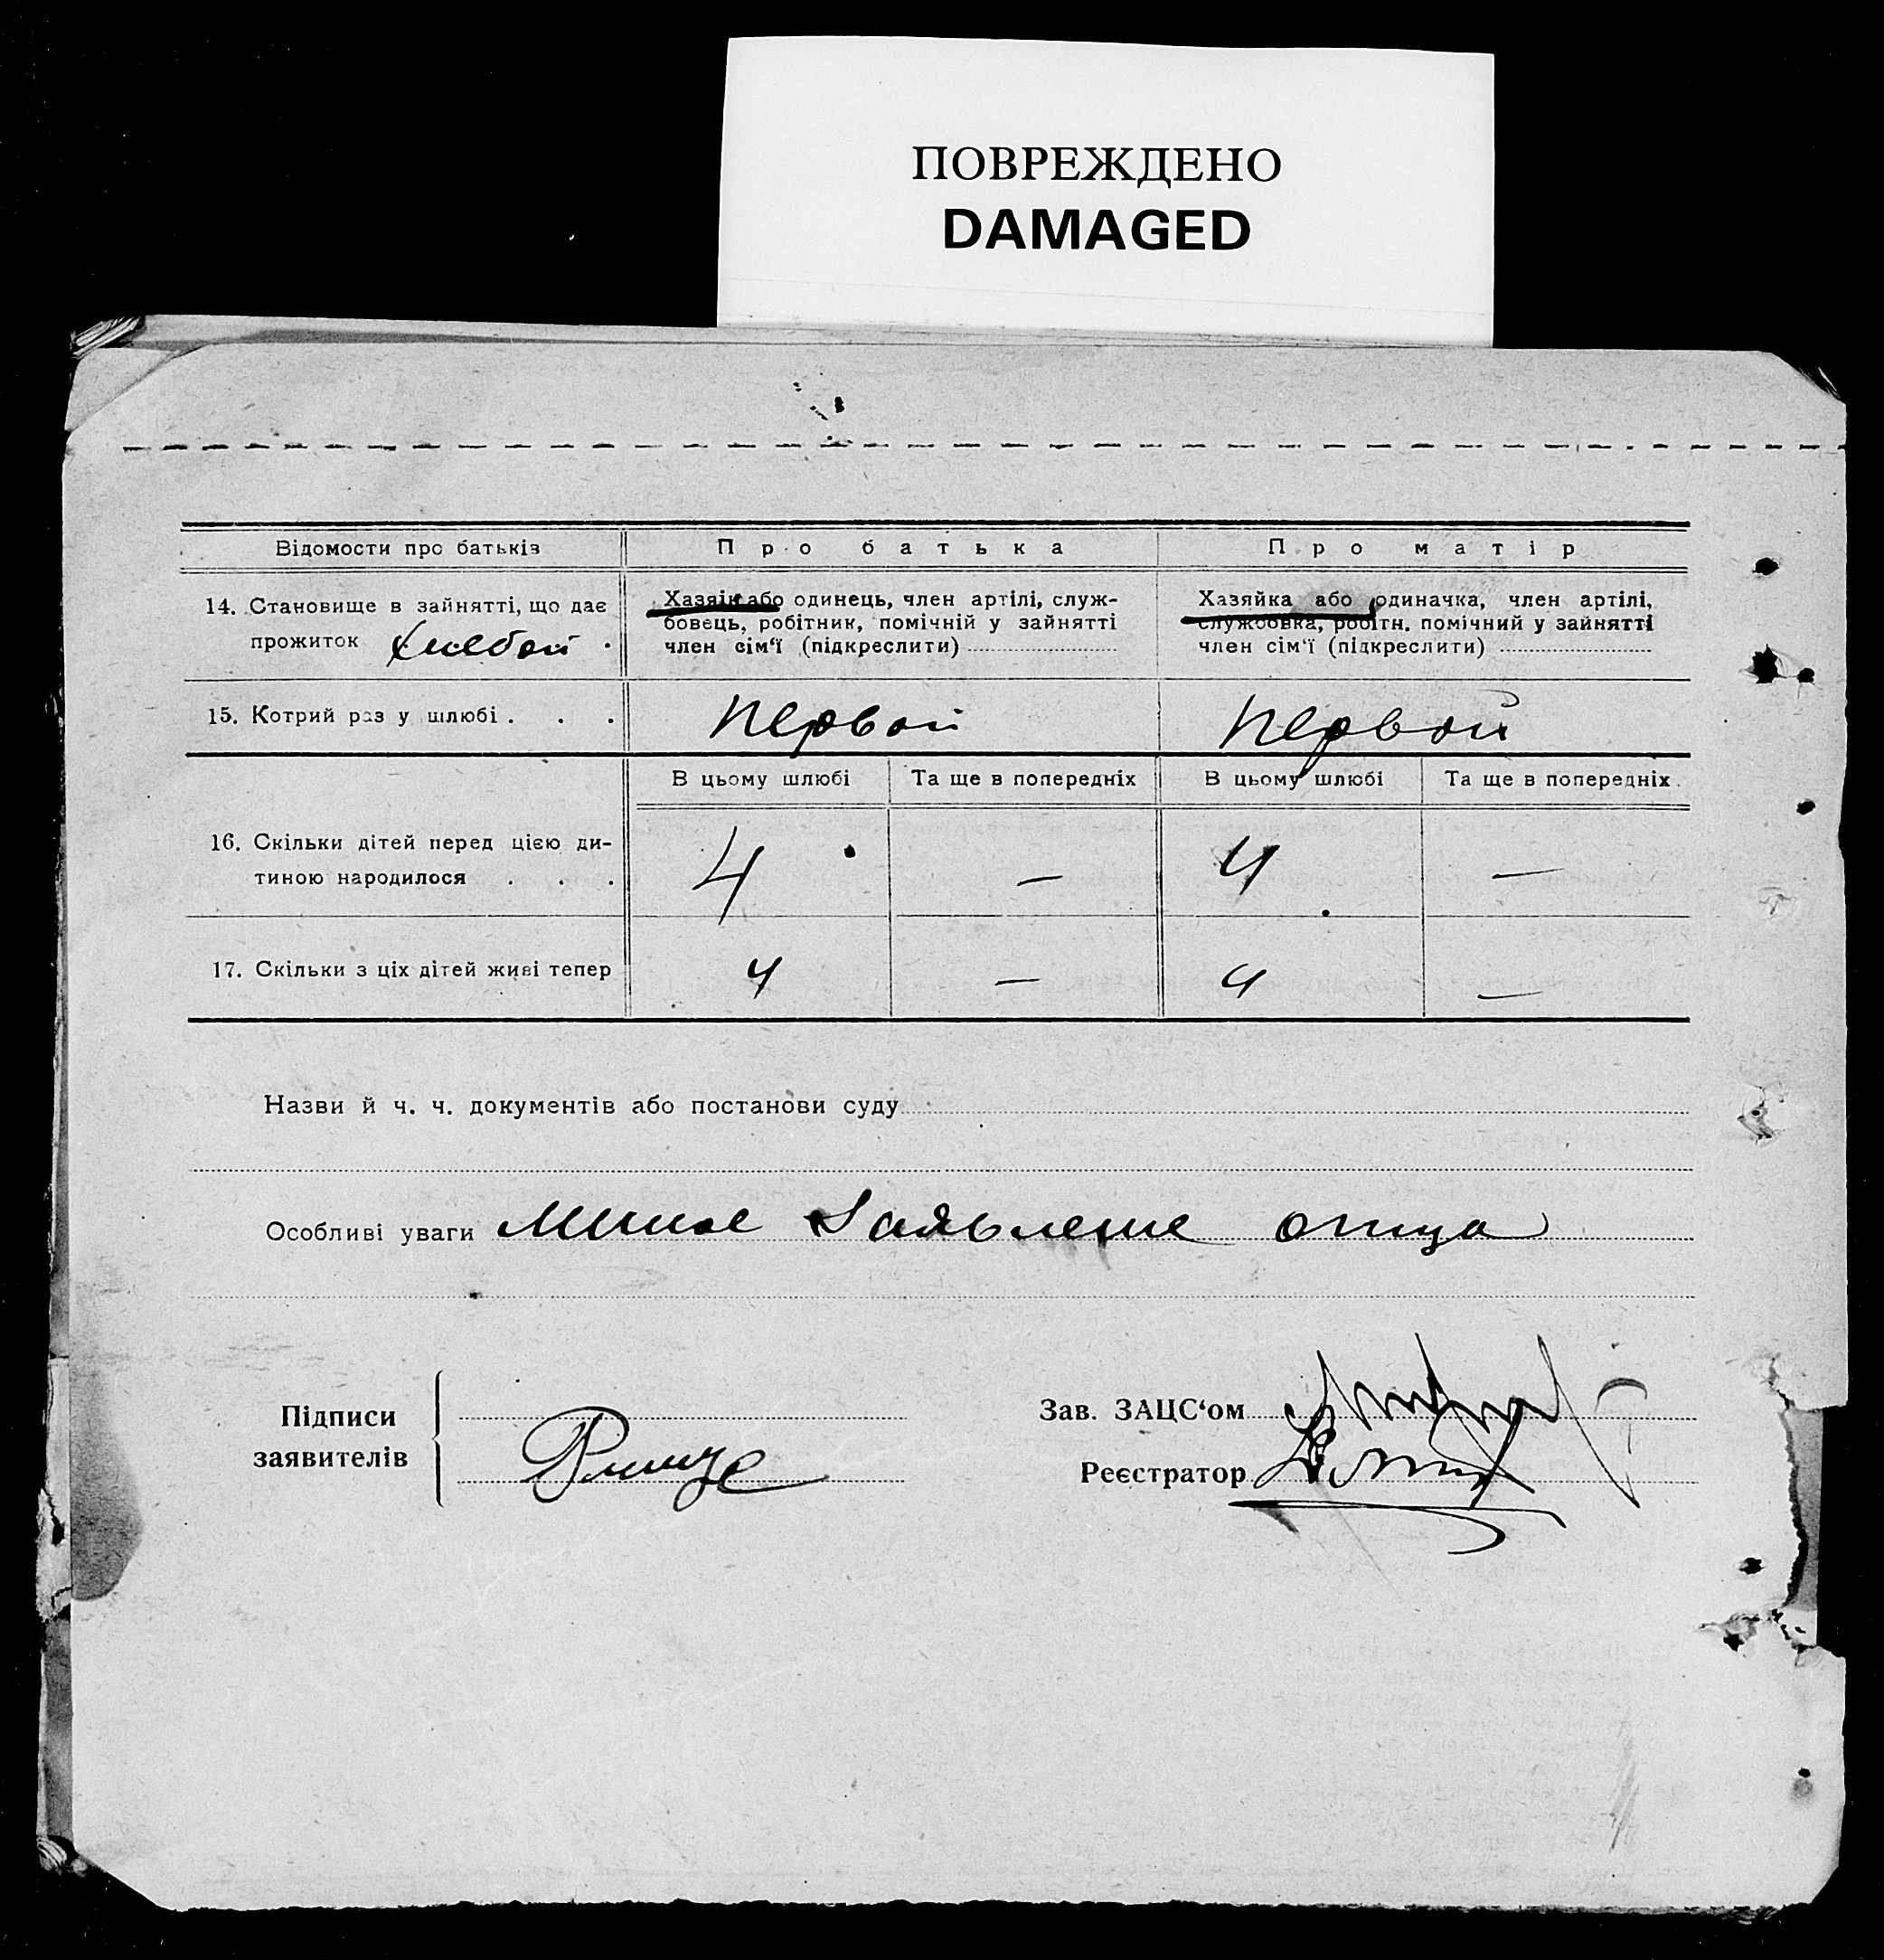 ПОВРЕЖДЕНО
DAMAGED
Відомости про батьків
Про батька
Про матір
14. Становище в зайнятті, що дає
прожиток
Хазяїн або одинець, член артілі, служ-
бовець, робітник, помічній у зайнятті
член сім'ї (підкреслити)
Хазяйка або одиначка, член артілі,
службовка, робітн. помічний у зайнятті
член сім'ї (підкреслити)
15. Котрий раз у шлюбі . . .
первой
первой
В цьому шлюбі
Та ще в попередніх
В цьому шлюбі
Та ще в попередніх
16. Скільки дітей перед цією ди-
тиною народилося . . .
4
—
4
—
17. Скільки з ціх дітей живі тепер
4
—
4
—
Назви й ч. ч. документів або постанови суду
Особливі уваги заявление отца
Підписи
заявителів
Зав. ЗАЦС'ом
Реєстратор